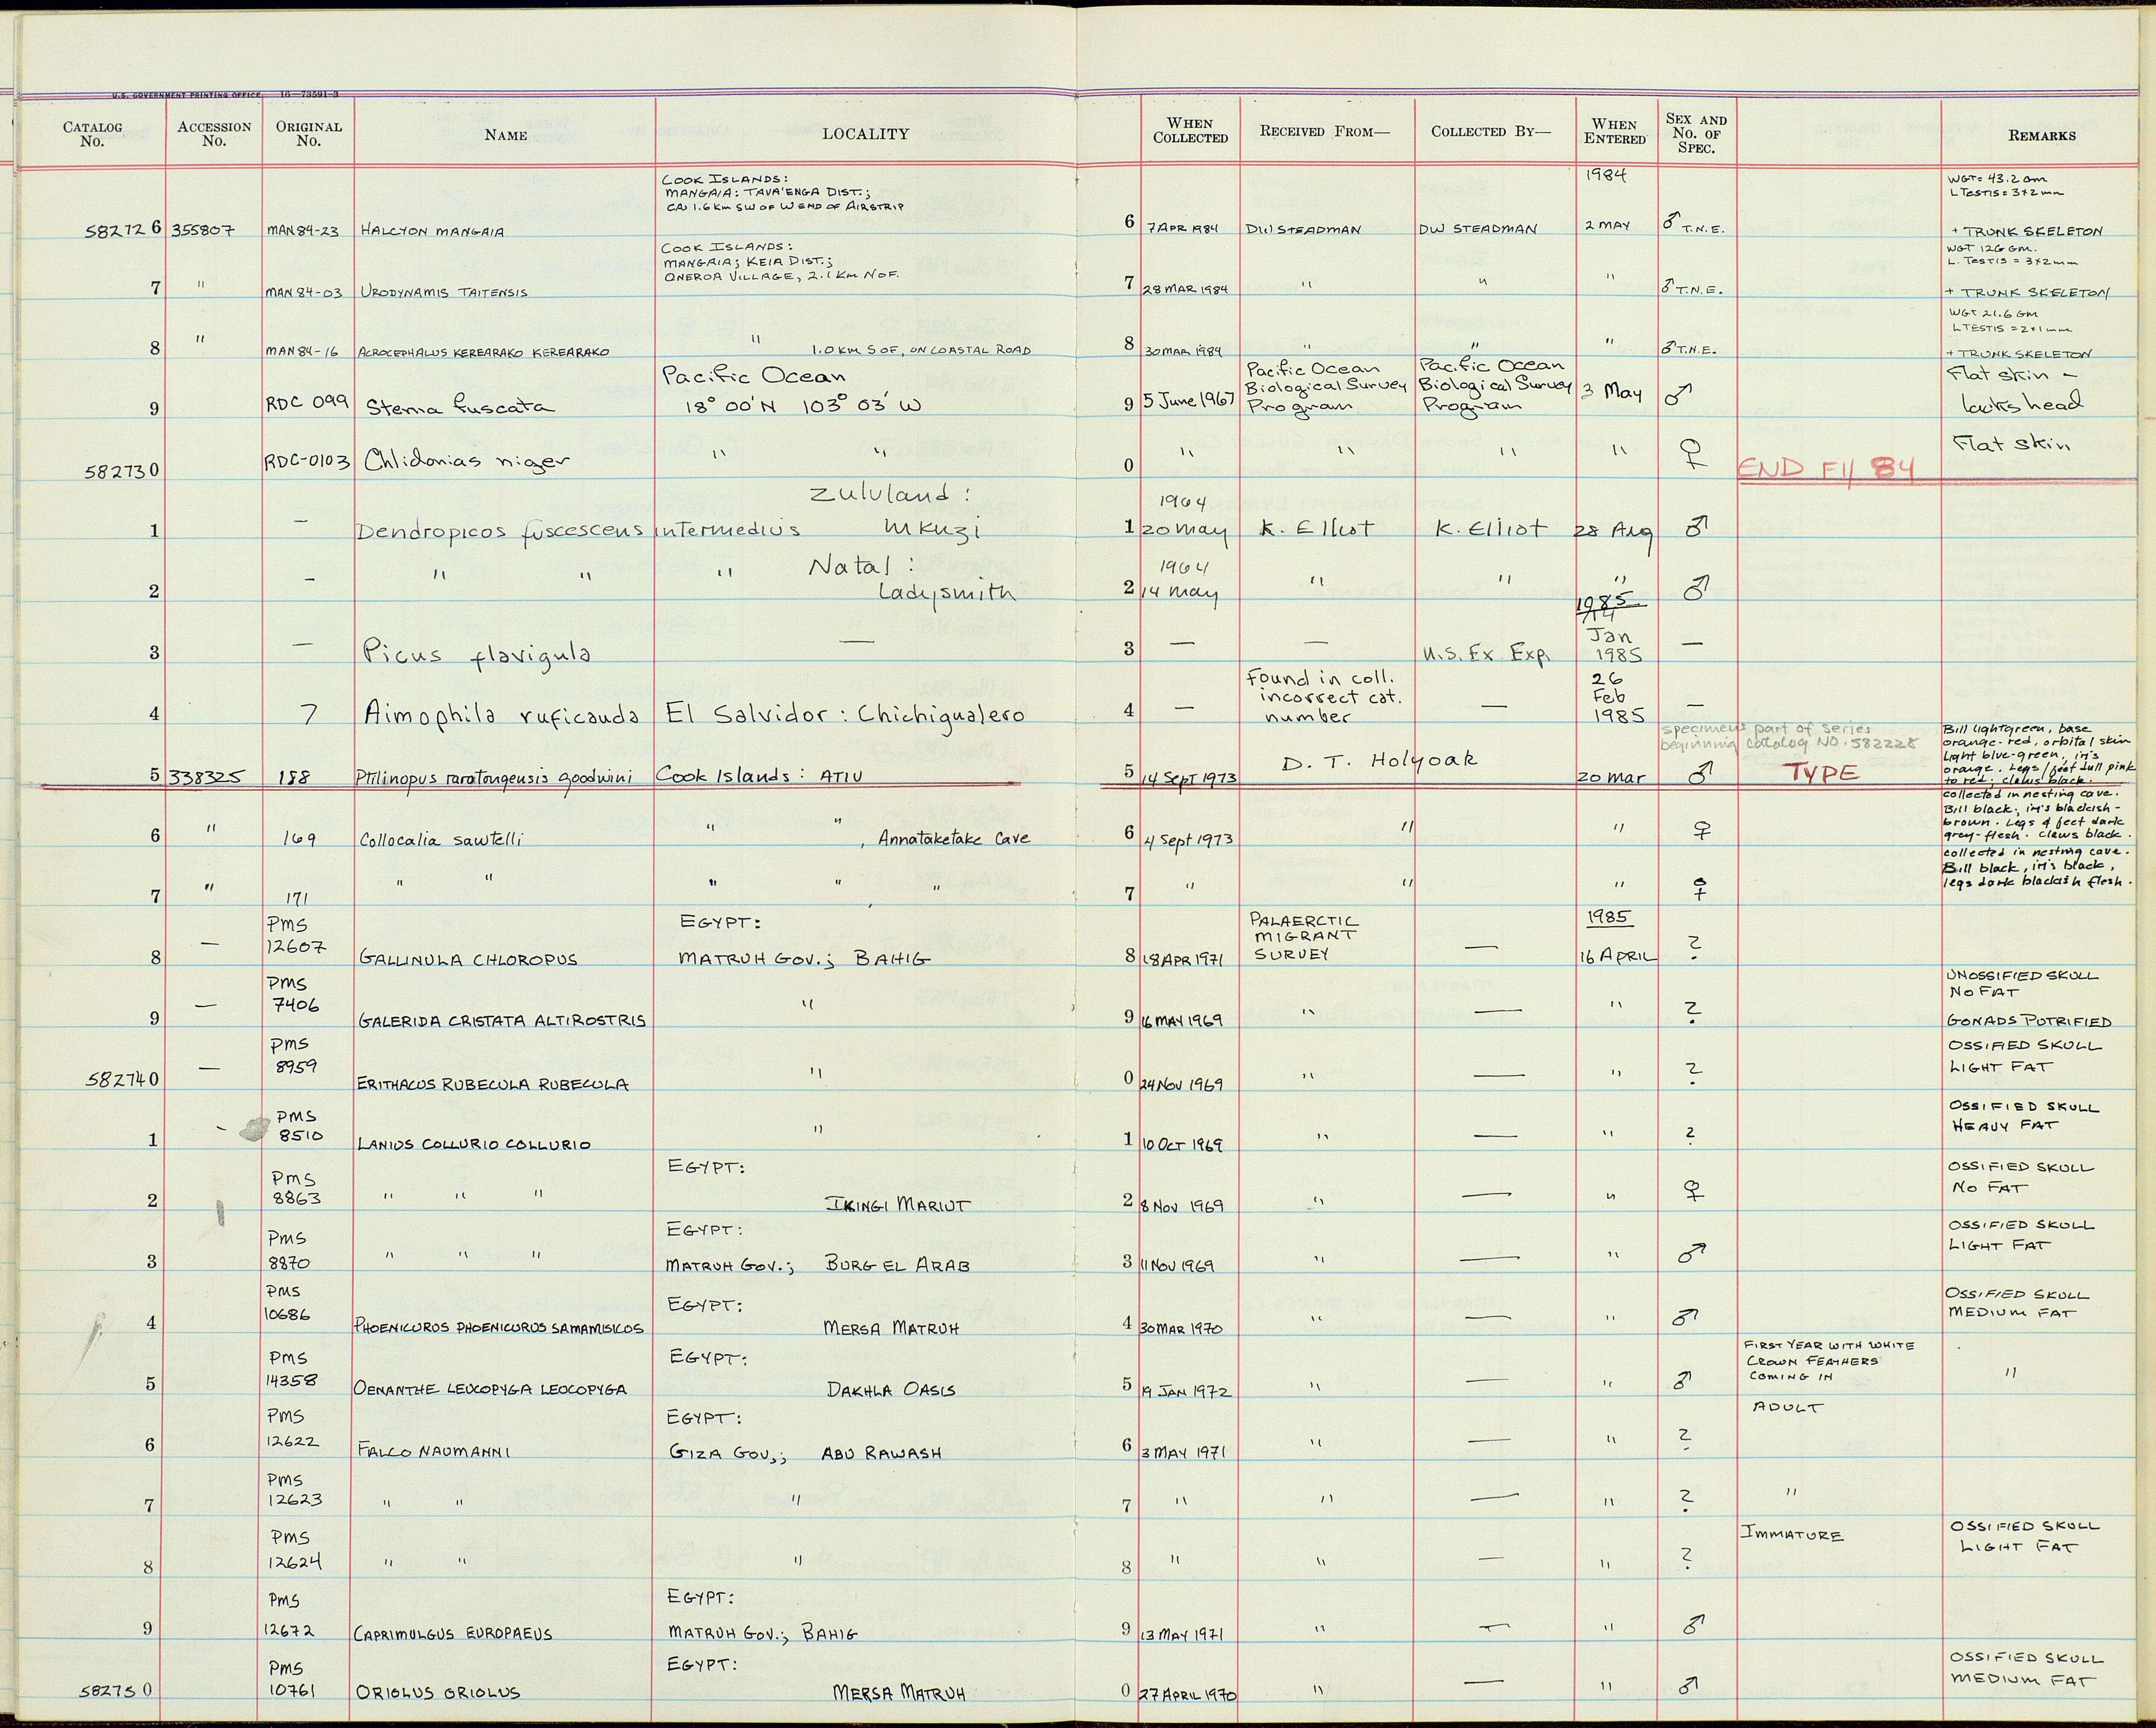 U.S. GOVERNMENT PRINTING OFFICE 16—73591-3
CATALOG No. ACCESSION No. ORIGINAL No. NAME LOCALITY WHEN COLLECTED RECEIVED FROM— COLLECTED BY— WHEN ENTERED SEX AND No. OF SPEC. REMARKS
COOK ISLANDS: 1984 WGT= 43.2 gm
MANGAIA: TAVA'ENGA DIST.; L TESTIS = 3×2mm
CA 1.6 Km SW OF W END OF AIRSTRIP
582726 355807 MAN 84-23 HALCYON MANGAIA 6 7 APR 1984 DW STEADMAN DW STEADMAN 2 MAY ♂ T.N.E. + TRUNK SKELETON
COOK ISLANDS: WGT 126 GM.
MANGAIA; KEIA DIST.; L. TESTIS = 3×2mm
ONEROA VILLAGE, 2.1 Km N OF.
7 " MAN 84-03 URODYNAMIS TAITENSIS 7 28 MAR 1984 " " " ♂ T.N.E. + TRUNK SKELETON
WGT 21.6 GM
L TESTIS = 2×1mm
8 " MAN 84-16 ACROCEPHALUS KEREARAKO KEREARAKO " 1.0 KM S OF, ON COASTAL ROAD 8 30 MAR 1984 " " " ♂ T.N.E. + TRUNK SKELETON
Pacific Ocean Pacific Ocean Pacific Ocean Flat skin –
9 RDC 099 Sterna fuscata 18° 00' N 103° 03' W 9 5 June 1967 Biological Survey Program Biological Survey Program 3 May ♂ lacks head
582730 RDC-0103 Chlidonias niger " " 0 " " " " ♀ END FY 84 Flat skin
Zululand: 1964
1 — Dendropicos fuscescens intermedius Mkuzi 1 20 may K. Elliot K. Elliot 28 Aug ♂
Natal: 1964
2 — " " " Ladysmith 2 14 may " " " ♂
1985
3 — Picus flavigula — 3 — — U.S. Ex. Exp. Jan 1985 —
Found in coll. 26
incorrect cat. Feb
4 7 Aimophila ruficauda El Salvidor: Chichigualero 4 — number — 1985 —
specimens part of series
beginning catalog NO. 582228
Bill lightgreen, base
orange-red, orbital skin
light blue-green, iris
orange. Legs/feet dull pink
to red; claws black.
5 338325 188 Ptilinopus rarotongensis goodwini Cook Islands: ATIU 5 14 Sept 1973 D. T. Holyoak 20 mar ♂ TYPE
collected in nesting cave.
Bill black; iris blackish-
brown. Legs & feet dark
grey-flesh. Claws black.
6 " 169 Collocalia sawtelli " " , Annataketake Cave 6 4 Sept 1973 " " ♀
collected in nesting cave.
Bill black, iris black,
legs dark blackish flesh.
7 " 171 " " " " " 7 " " " ♀
PMS EGYPT: PALAERCTIC 1985
8 — 12607 GALLINULA CHLOROPUS MATRUH GOV.; BAHIG 8 18 APR 1971 MIGRANT SURVEY — 16 APRIL ?
PMS UNOSSIFIED SKULL
7406 NO FAT
9 — GALERIDA CRISTATA ALTIROSTRIS " 9 16 MAY 1969 " — " ? GONADS PUTRIFIED
PMS OSSIFIED SKULL
582740 — 8959 ERITHACUS RUBECULA RUBECULA " 0 24 NOV 1969 " — " ? LIGHT FAT
PMS OSSIFIED SKULL
1 - 8510 LANIUS COLLURIO COLLURIO " 1 10 OCT 1969 " — " ? HEAVY FAT
PMS EGYPT: OSSIFIED SKULL
2 8863 " " " IKINGI MARIUT 2 8 NOV 1969 " — " ♀ NO FAT
PMS EGYPT: OSSIFIED SKULL
3 8870 " " " MATRUH GOV.; BURG EL ARAB 3 11 NOV 1969 " — " ♂ LIGHT FAT
PMS EGYPT: OSSIFIED SKULL
4 10686 PHOENICUROS PHOENICUROS SAMAMISICOS MERSA MATRUH 4 30 MAR 1970 " — " ♂ MEDIUM FAT
PMS EGYPT: FIRST YEAR WITH WHITE
CROWN FEATHERS
5 14358 OENANTHE LEUCOPYGA LEUCOPYGA DAKHLA OASIS 5 19 JAN 1972 " — " ♂ COMING IN "
PMS EGYPT: ADULT
6 12622 FALCO NAUMANNI GIZA GOV.; ABU RAWASH 6 3 MAY 1971 " — " ?
PMS
7 12623 " " " 7 " " — " ? "
PMS IMMATURE OSSIFIED SKULL
8 12624 " " " 8 " " — " ? LIGHT FAT
PMS EGYPT:
9 12672 CAPRIMULGUS EUROPAEUS MATRUH GOV.; BAHIG 9 13 MAY 1971 " — " ♂
PMS EGYPT: OSSIFIED SKULL
582750 10761 ORIOLUS ORIOLUS MERSA MATRUH 0 27 APRIL 1970 " — " ♂ MEDIUM FAT